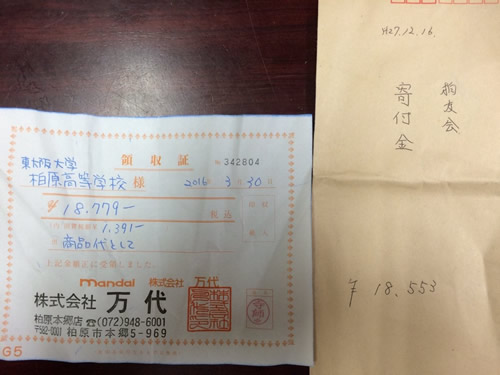 領収証
№ 342804
東大阪大学
柏原高等学校 様
2016年 3月30日
¥18,779-
税込
1,391-
商品代として
上記金額正に受領しました。
mandai 株式会社 万代
株式会社 万代
柏原本郷店 ☎(072)948-6001
〒582-0001 柏原市本郷5-969
G5
H27.12.16.
柏友会
寄付金
¥ 18,553